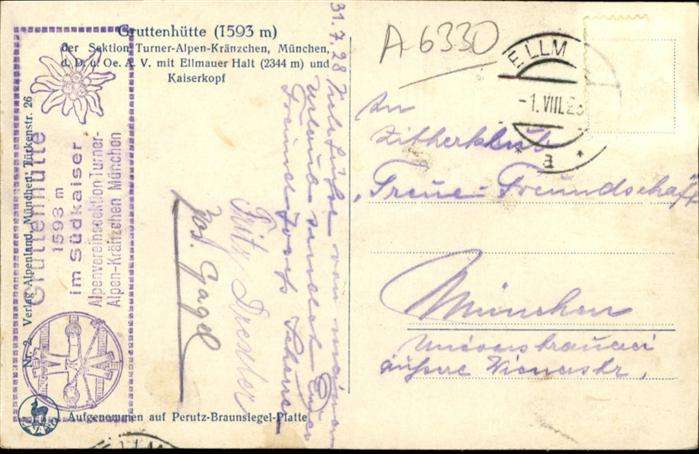 Gruttenhütte (1593 m)
der Sektion Turner-Alpen-Kränzchen, München,
d. D. u. Oe. A. V. mit Ellmauer Halt (2344 m) und
Kaiserkopf
Verlag Alpenland, München, Türkenstr. 26
Gruttenhütte
1593 m
im Südkaiser
Alpenvereinssektion Turner-
Alpen-Kränzchen München
31.7.28
Freund Josef
Fritz Drexler
Jos. Gagel
Aufgenommen auf Perutz-Braunsiegel-Platte
A 6330
ELLM
-1.VIII.2
a
An
Zitherklub
"Treue Freundschaft
München
äußere Wienerstr.
ELLM